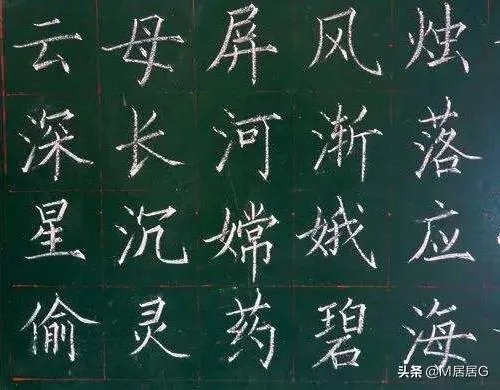 云母屏风烛
深长河渐落
星沉嫦娥应
偷灵药碧海
头条 @M居居G